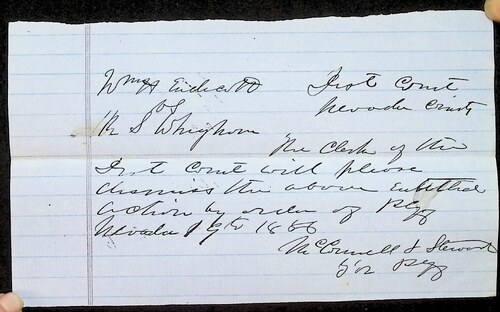 Wm H Endicott Dist Court
vs Nevada County
R S Whigham
The Clerk of the
Dist Court will please
dismiss the above entitled
action by order of Plff
Nevada 19th 1856
McConnell & Stewart
for Plff